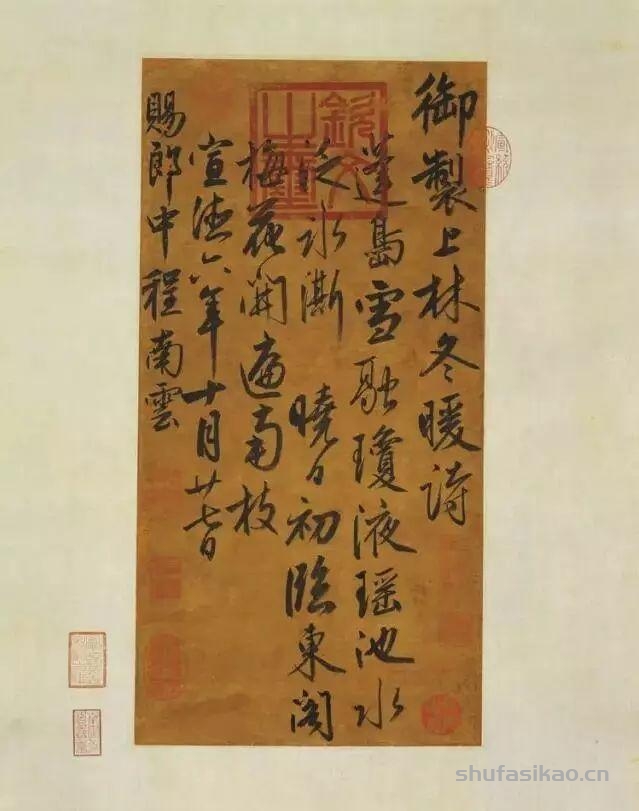 御製上林冬暖詩
蓬島雪融瓊液瑶池水
泛冰澌 曉日初臨東閣
梅花開遍南枝
宣德六年十月廿七日
賜郎中程南雲
欽文之璽
shufasikao.cn